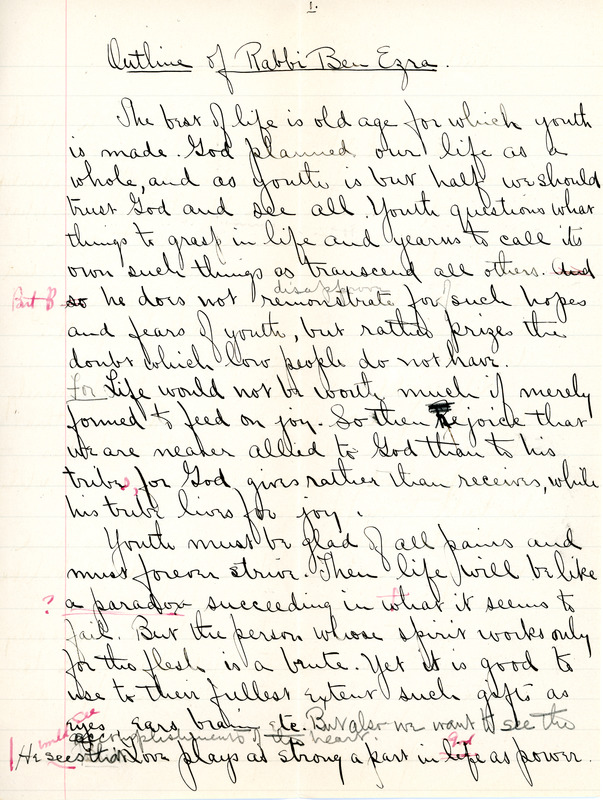 1.
Outline of Rabbi Ben Ezra.
The best of life is old age for which youth
is made. God planned our life as a
whole, and as youth is but half we should
trust God and see all. Youth questions what
things to grasp in life and yearns to call its
own such things as transcend all others. And
disapprove
But B so he does not remonstrate for such hopes
and fears of youth, but rather prizes the
doubt which low people do not have.
For Life would not be worth much if merely
formed to feed on joy. So then Rejoice that
we are nearer allied to God than to his
tribe, for God gives rather than receives, while
his tribe lives for joy.
Youth must be glad of all pains and
must forever strive. Then life will be like
? a paradox succeeding in what it seems to
fail. But the person whose spirit works only
for the flesh is a brute. Yet it is good to
use to their fullest extent such gifts as
eyes ears, brain etc. But also we want to see the
accomplishments of the heart.
He sees that love plays as strong a part in life as power.
God